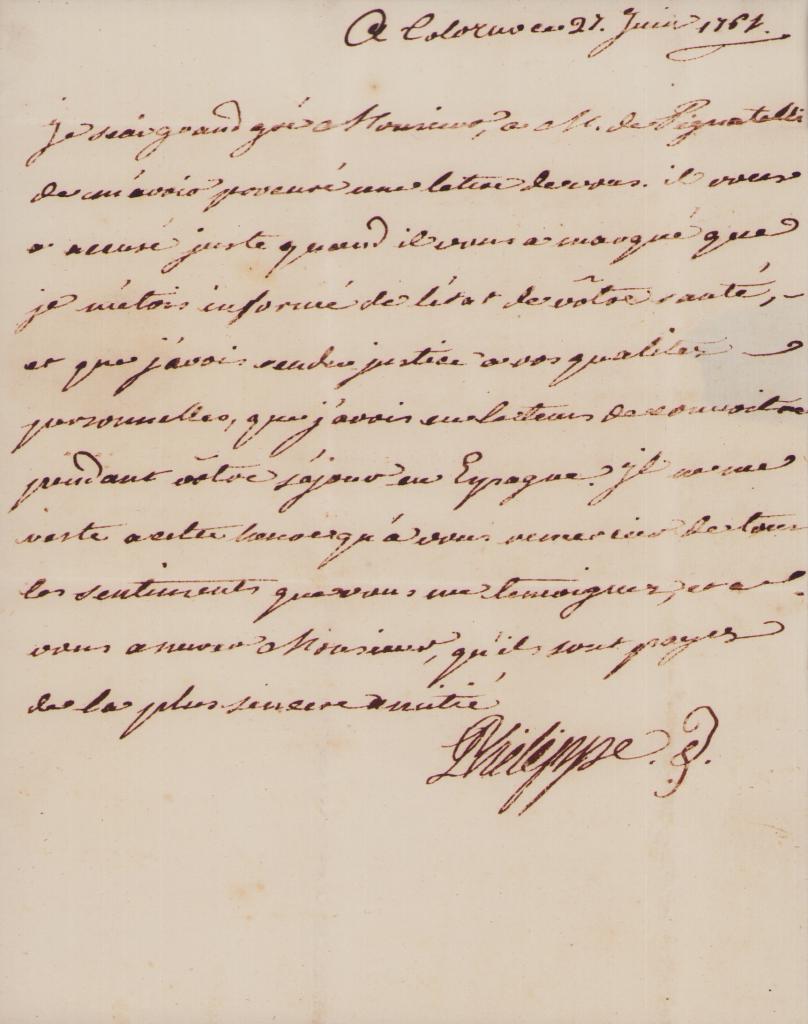 A Colorno ce 27. Juin 1761.
Je sçai grand gré Monsieur, a M. de Pignatelli
de m'avoir procuré une letre de vous. il vous
a accusé juste quand il vous a marqué que
je m'étois informé de l'état de vôtre santé,
et que j'avois rendu justice a vos qualites
personnelles, que j'avois eu le tems de connoitre
pendant vôtre séjour en Espagne. Il ne me
reste a cette heure qu'á vous remercier de tous
les sentiments que vous me temoignez, et a
vous assurer Monsieur, qu'ils sont payes
de la plus sincere amitié
Philippe.